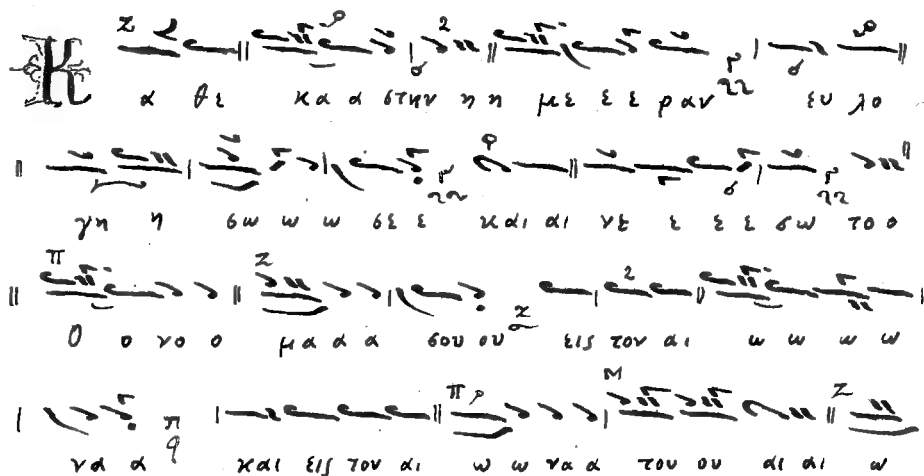 Κ α θε κα α στην η η με ε ε ραν ευ λο
γη η σω ω ω σε ε και αι νε ε ε ε σω το ο
ο ο νο ο μα α α α σου ου εις τον αι ω ω ω ω
να α και εις τον αι ω ω να α του ου αι αι ω